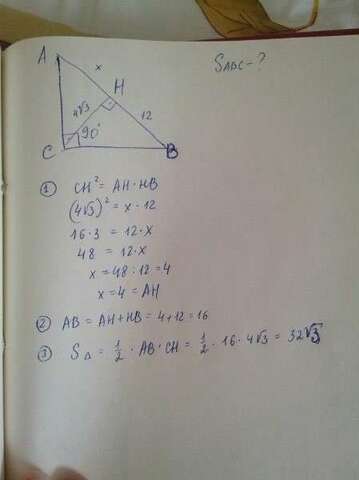 S_ABC - ?
A
x
H
4√3
12
C
90°
B
① CH² = AH · HB
(4√3)² = x · 12
16·3 = 12·x
48 = 12·x
x = 48 : 12 = 4
x = 4 = AH
② AB = AH + HB = 4 + 12 = 16
③ S_Δ = 1/2 · AB · CH = 1/2 · 16 · 4√3 = 32√3